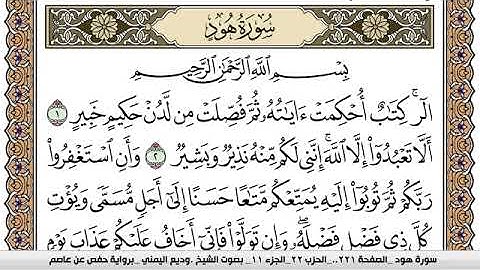 سُورَةُ هُودٍ
بِسْمِ اللَّهِ الرَّحْمَٰنِ الرَّحِيمِ
الٓرۚ كِتَٰبٌ أُحْكِمَتْ ءَايَٰتُهُۥ ثُمَّ فُصِّلَتْ مِن لَّدُنْ حَكِيمٍ خَبِيرٍ ١
أَلَّا تَعْبُدُوٓا۟ إِلَّا ٱللَّهَۚ إِنَّنِى لَكُم مِّنْهُ نَذِيرٌ وَبَشِيرٌ ٢ وَأَنِ ٱسْتَغْفِرُوا۟
رَبَّكُمْ ثُمَّ تُوبُوٓا۟ إِلَيْهِ يُمَتِّعْكُم مَّتَٰعًا حَسَنًا إِلَىٰٓ أَجَلٍ مُّسَمًّى وَيُؤْتِ
كُلَّ ذِى فَضْلٍ فَضْلَهُۥۖ وَإِن تَوَلَّوْا۟ فَإِنِّىٓ أَخَافُ عَلَيْكُمْ عَذَابَ يَوْمٍ
سورة هود _الصفحة ٢٢١،،_الحزب ٢٢_الجزء ١١_ بصوت الشيخ .وديع اليمني _برواية حفص عن عاصم